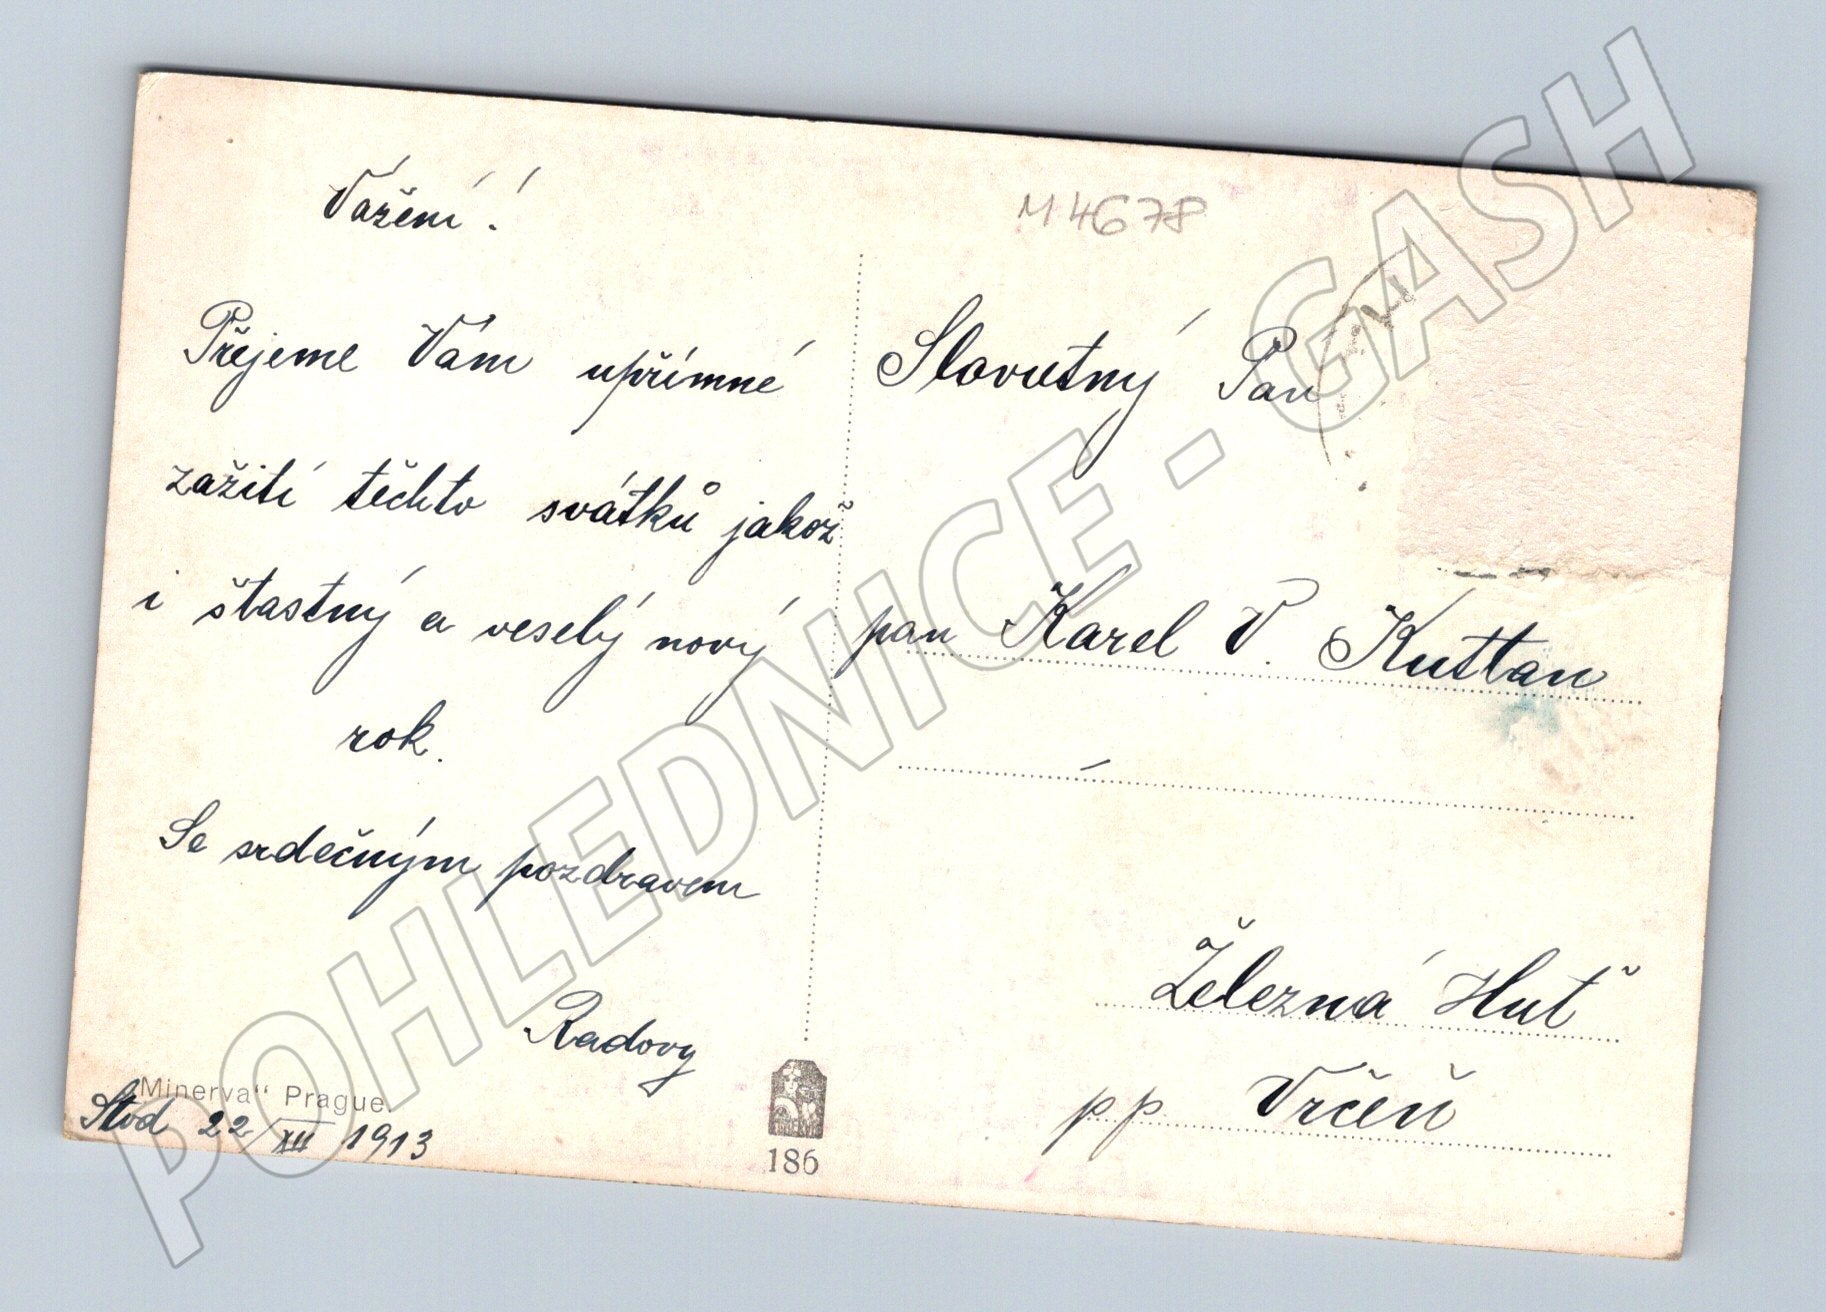 Vážení!
Přejeme Vám upřímné
zažití těchto svátků jakož
i štastný a veselý nový
rok.
Se srdečným pozdravem
Radovy
"Minerva" Prague.
Stod 22/XII 1913
186
M 4678
Slovutný Pan
pan Karel V. Kuttan
Železná Huť
pp Vrčeň
POHLEDNICE - GASH